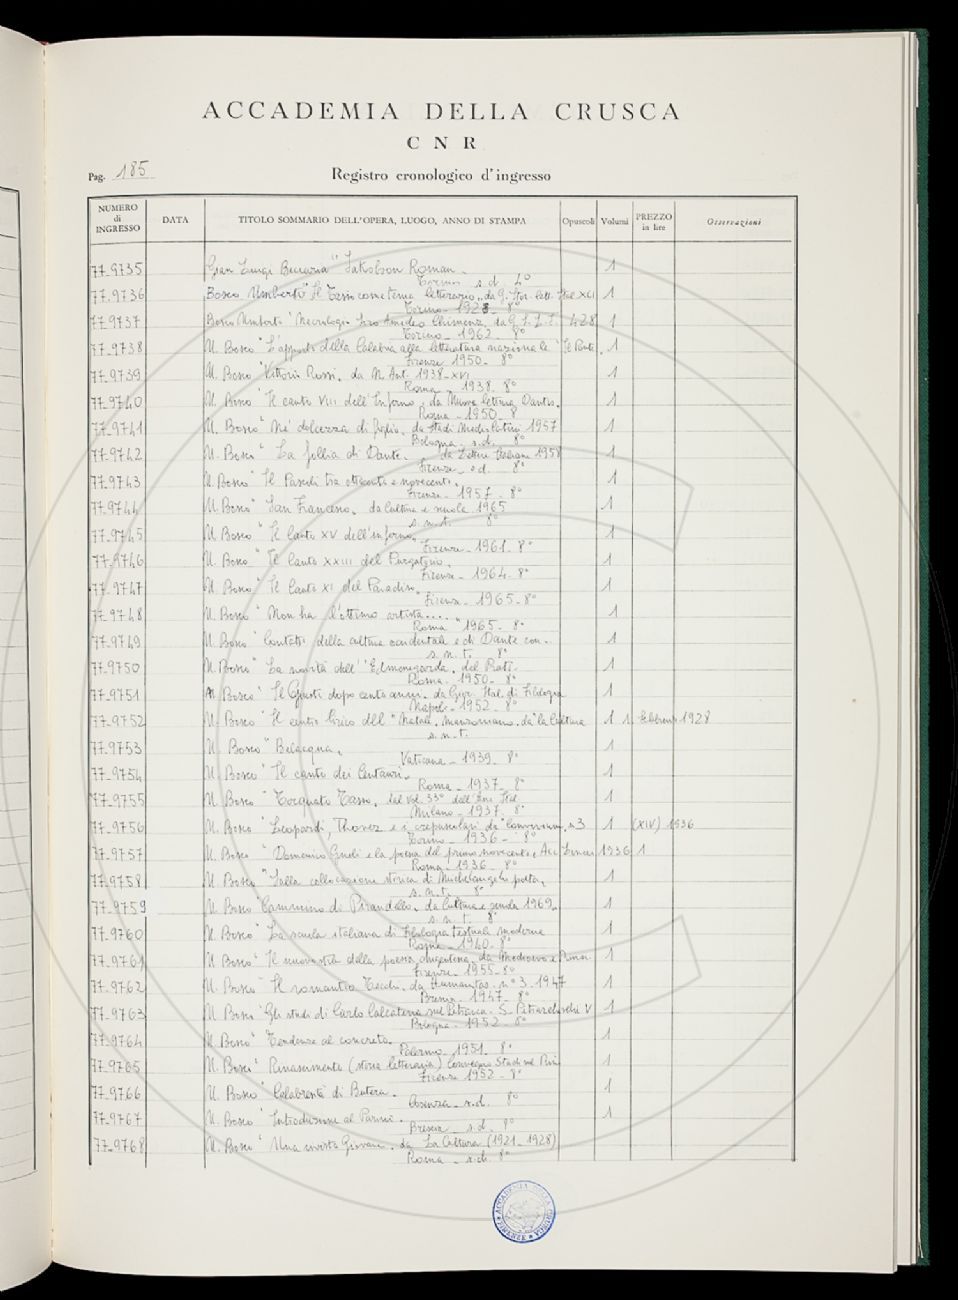 ACCADEMIA DELLA CRUSCA
C N R
Pag. 185
Registro cronologico d'ingresso
NUMERO di INGRESSO DATA TITOLO SOMMARIO DELL'OPERA, LUOGO, ANNO DI STAMPA Opuscoli Volumi PREZZO in lire Osservazioni
77-9735 Gian Luigi Beccaria " Jakobson Roman. 1
Torino s.d. 4°
77-9736 Bosco Umberto " Il Tasso come tema letterario, da G. Stor. Lett. Ital. XCI 1
Torino - 1928 - 8°
77-9737 Bosco Umberto " Necrologio Siro Amedeo Chimenz, da G.S.L.I. 428 1
Torino - 1962 - 8°
77-9738 U. Bosco " L'apporto della Calabria alla letteratura nazionale " Il Ponte, 1
Firenze 1950 - 8°
77-9739 U. Bosco " Vittorio Rossi. da N. Ant. 1938-XVI 1
Roma - 1938 - 8°
77-9740 U. Bosco " Il canto VIII dell'Inferno, da Nuova lettura Dantis. 1
Roma - 1950 - 8
77-9741 U. Bosco " Né dolcezza di figlio, da Studi Mediolatini 1957 1
Bologna - s.d. 8°
77-9742 U. Bosco " La follia di Dante. da Lettere Italiane 1958 1
Firenze - s.d. 8°
77-9743 U. Bosco " Il Pascoli tra ottocento e novecento. 1
Firenze - 1957 - 8°
77-9744 U. Bosco " San Francesco. da Cultura e scuola 1965 1
s.n.t. 8°
77-9745 U. Bosco " Il Canto XV dell'inferno. 1
Firenze - 1961 - 8°
77-9746 U. Bosco " Il Canto XXIII del Purgatorio. 1
Firenze - 1964 - 8°
77-9747 U. Bosco " Il Canto XI del Paradiso. 1
Firenze - 1965 - 8°
77-9748 U. Bosco " Non ha l'ottimo artista.... 1
Roma 1965 - 8°
77-9749 U. Bosco " Contatti della cultura occidentale e di Dante con.. 1
s.n.t. 8°
77-9750 U. Bosco " La novità dell'"Edmenegarda" del Prati. 1
Roma - 1950 - 8°
77-9751 U. Bosco " Il Giusti dopo cento anni. da Gior. Ital. di Filologia 1
Napoli - 1952 - 8°
77-9752 U. Bosco " Il centro lirico del "Natale" manzoniano. da "La Cultura 1 1. febbraio 1928
s.n.t.
77-9753 U. Bosco " Belacqua. 1
Vaticana - 1939 - 8°
77-9754 U. Bosco " Il canto dei Centauri. 1
Roma - 1937 - 8°
77-9755 U. Bosco " Torquato Tasso. dal vol. 33° dell'Enc. Ital. 1
Milano - 1937 - 8°
77-9756 U. Bosco " Leopardi, Thovez e i crepuscolari da " n 3 1 (XIV) 1936
Torino - 1936 - 8°
77-9757 U. Bosco " Domenico Gnoli e la poesia del primo novecento, Acc. Lincei 1936 1
Roma - 1936 - 8°
77-9758 U. Bosco " Sulla collocazione storica di Michelangelo poeta. 1
s.n.t. 8°
77-9759 U. Bosco " Cammino di Pirandello. da Cultura e scuola 1969. 1
s.n.t. 8°
77-9760 U. Bosco " La scuola italiana di filologia testuale moderna 1
Roma - 1940 - 8°
77-9761 U. Bosco " Il nuovo stile della poesia dugentesca, da Medioevo e Rina. 1
Firenze - 1955 - 8°
77-9762 U. Bosco " Il romantico Tecchi. da Humanitas. n° 3. 1947 1
Brescia - 1947 - 8°
77-9763 U. Bosco " Gli studi di Carlo Calcaterra sul Petrarca. S. Petrarcheschi V 1
Bologna - 1952 - 8°
77-9764 U. Bosco " Tendenze al concreto. 1
Palermo - 1951 - 8°
77-9765 U. Bosco " Rinascimento (storia letteraria) Convegno Studi sul Rin. 1
Firenze 1952 - 8°
77-9766 U. Bosco " Calabresità di Butera. 1
Cosenza - s.d. 8°
77-9767 U. Bosco " Introduzione al Parini. 1
Brescia - s.d. 8°
77-9768 U. Bosco " Una rivista Giovane. da La Cultura (1921-1928)
Roma - s.d. 8°
ACCADEMIA DELLA CRUSCA FIRENZE